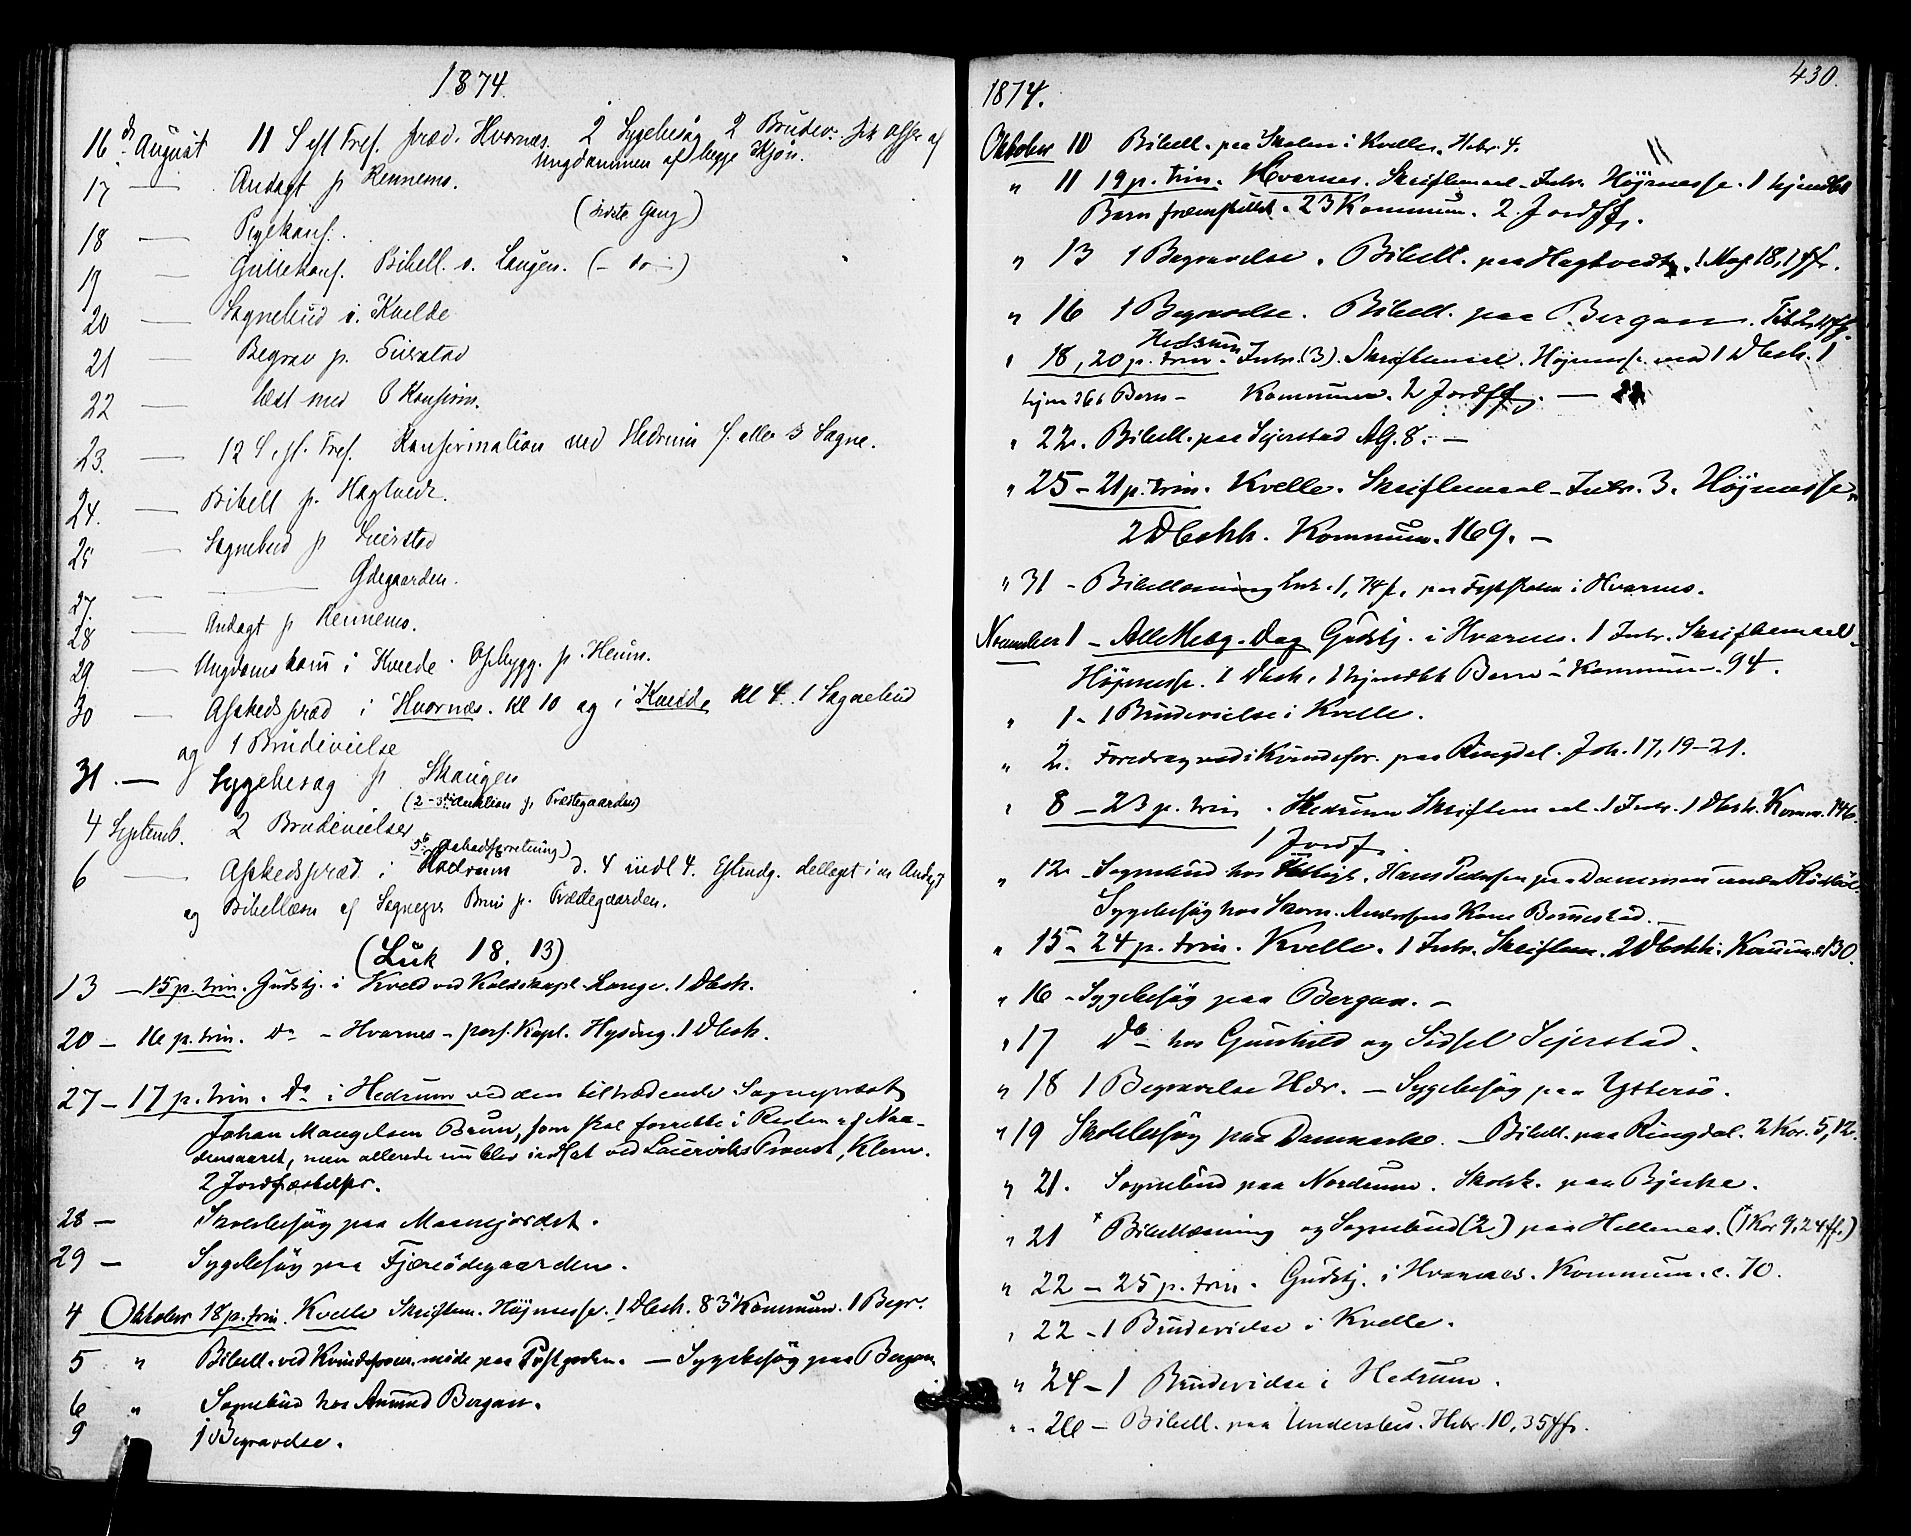 1874.
16 de August 11 S eft Tref. præd. Hvarnæs. 2 Sygebesøg 2 Brudev.
Ungdommen af begge Kjøn.
17 — Andagt p Rennems.
(sidste Gang)
18 — Pigekonf.
19 — Guttekonf. Bibell. (— do —)
20 — Sognebud i Kvelde
21 — Begrav p. Seierstad
22 — læst med 6 Konfirm.
23. — 12 S. ef. Tref. Konfirmation ved Hedrum f. alle 3 Sogne.
24. — Bibell p. Hagtvedt.
25 — Sognebud p Seierstad
27. — — Ødegaarden.
28 — Andagt p Rennems.
29 — Ungdomskom i Kvelde. Opbygg. p. Heum.
30 — Afskedspræd i Hvarnæs. kl 10 og i Kvelde kl 4. 1 Sognebud
og 1 Brudevielse
31. — Sygebesøg p Skaugen
(2 – p Præstegaarden)
4 Septemb. 2 Brudevielser
6 — Afskedspræd i Hedrum
og Bibellæsn af p. Præstegaarden.
(Luk 18. 13)
13 — 15 p. trin. Gudstj. i Kveld ved Kaldskapl. Lange. 1 Dbsb.
20 — 16 p. trin. Do – Hvarnes – pers. Kapl. Hysing. 1 Dbsb.
27 — 17 p. trin. Do i Hedrum ved den tiltrædende Sognepræst
Johan Mangelsen Brun, som skal forrette i Resten af Naa-
densaaret, men allerede nu blev indsat ved Laurviks Provst, Klem.
2 Jordfæstelser.
28 — Skolebesøg paa Maanejordet.
29 — Sygebesøg paa Fjæreödegaarden.
4 Oktober 18 p. trin. Kvelle Skriftem. Højmesse. 1 Dbsb. 83 Kommun. 1 Begr.
5 " Bibell. ved Kvindeforen. møde paa — Sygebesøg paa Bergan
6 " Sognebud hos Amund Bergan.
9 " 1 Begravelse.
430.
1874.
Oktober 10 Bibell. paa Skolen i Kvelle. Hebr. 4.
" 11 19 p. trin. Hvarnes. Skriftemaal – Intr. Højmesse. 1 hjemdbt
Barn fremstillet. 23 Kommun. 2 Jordff.
" 13 1 Begravelse. Bibell. paa Hagtvedt. 1 Mos 18, 1 ff.
" 16 1 Begravelse. Bibell. paa Bergan. Tit 2, 11 ff.
Hedrum
" 18, 20 p. trin. Intr. (3). Skriftemaal. Højmesse med 1 Dbsb. 1
hjemdbt Barn – Kommunion. 2 Jordff. —
" 22. Bibell. paa Sejerstad AG. 8. —
" 25 – 21 p. trin. Kvelle. Skriftemaal – Intr. 3. Højmesse,
2 Dbsbb. Kommun. 169. —
" 31 – Bibellæsning Luk. 1, 74 f. paa i Hvarnes.
November 1 – Alle Helg. Dag Gudstj. i Hvarnes. 1 Intr. Skriftemaal –
Højmesse. 1 Dbsb. 1 hjemdbt Barn – Kommun – 94.
" 1 – 1 Brudevielse i Kvelle.
" 2. Foredrag ved Kvindefor. paa Ringdal. Joh. 17, 19–21.
" 8 – 23 p. trin. Hedrum Skriftemaal. 1 Intr. 1 Dbsb. Komm. 146.
1 Jordf.
" 12 – Sognebud hos Hans Pedersen paa Dammen
Sygebesøg hos Andersens Kone Bommestad.
" 15 – 24 p. trin. Kvelle. 1 Intr. Skriftem. 2 Dbsbb. Kommun. 130.
" 16 – Sygebesøg paa Bergan. —
" 17 Do – hos Gunhild og Sidsel Sejerstad.
" 18 1 Begravelse Hdr. – Sygebesøg paa Yttersö.
" 19 Skolebesøg paa Danmarka. – Bibell. paa Ringdal. 2 Kor. 5, 12.
" 21. Sognebud paa Nordrum. Skoleb. paa Bjerke.
" 21 * Bibellæsning og Sognebud (2) paa Hellenes. (* 1 Kor 9, 24 ff.)
" 22 – 25 p. trin. Gudstj. i Hvarnes. Kommun. c. 70.
" 22 – 1 Brudevielse i Kvelle.
" 24 – 1 Brudevielse i Hedrum.
" 26 – Bibell. paa Undersbu. Hebr. 10, 35 ff.